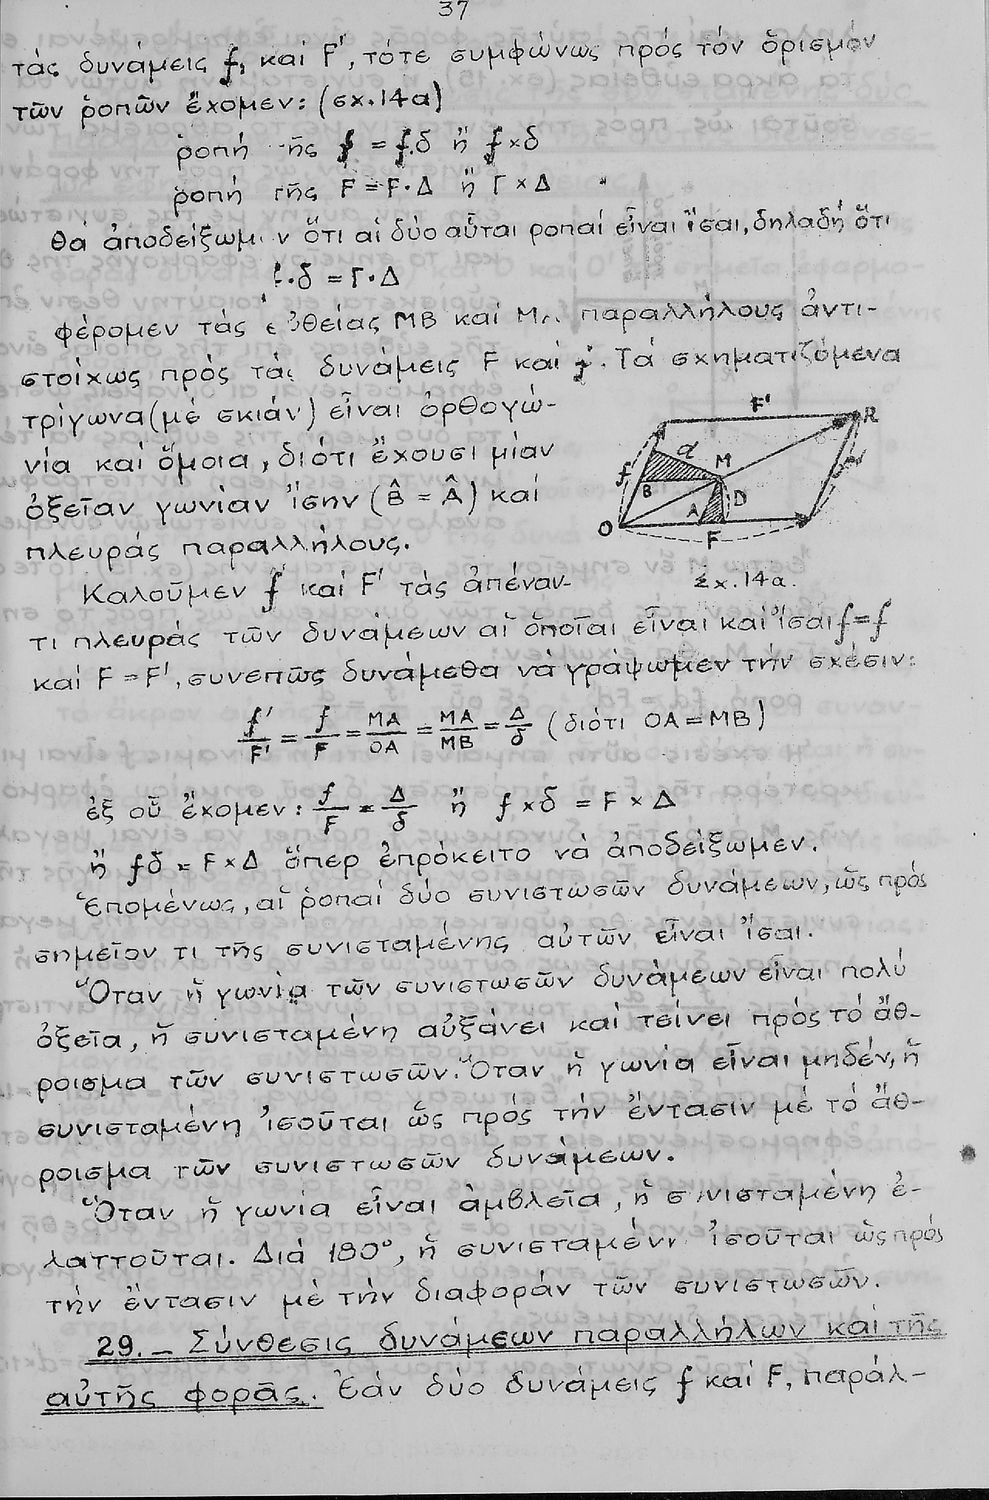 37
τάς δυνάμεις f, καί F', τότε συμφώνως πρός τόν ὅρισμόν
τῶν ῥοπῶν ἔχομεν: (σχ.14α)
ῥοπή τῆς f = f.δ ἤ f×δ
ῥοπή τῆς F = F·Δ ἤ F×Δ
θά ἀποδείξωμεν ὅτι αἱ δύο αὗται ροπαί εἶναι ἴσαι, δηλαδή ὅτι
f·δ = F·Δ
φέρομεν τάς εὐθείας MB καί MA παραλλήλους ἀντι-
στοίχως πρός τάς δυνάμεις F καί f. Τά σχηματιζόμενα
τρίγωνα (μέ σκιάν) εἶναι ὀρθογώ-
νία καί ὅμοια, διότι ἔχουσι μίαν
ὀξεῖαν γωνίαν ἴσην (B̂ = Â) καί
πλευράς παραλλήλους.
F'
R
f
d
M
B
A
D
O
F
f'
Σχ.14α.
Καλοῦμεν f' καί F' τάς ἀπέναν-
τι πλευράς τῶν δυνάμεων αἵ ὁποῖαι εἶναι καί ἴσαι f=f
καί F=F', συνεπῶς δυνάμεθα νά γράψωμεν τήν σχέσιν:
f'/F' = f/F = MA/OA = MA/MB = Δ/δ (διότι OA = MB)
ἐξ οὗ ἔχομεν: f/F = Δ/δ ἤ f×δ = F×Δ
ἤ fδ = F×Δ ὅπερ ἐπρόκειτο νὰ ἀποδείξωμεν.
Ἑπομένως, αἵ ῥοπαί δύο συνιστωσῶν δυνάμεων, ὡς πρός
σημεῖον τι τῆς συνισταμένης αὐτῶν εἶναι ἴσαι.
Ὅταν ἥ γωνία τῶν συνιστωσῶν δυνάμεων εἶναι πολύ
ὀξεῖα, ἥ συνισταμένη αὐξάνει καί τείνει πρός τό ἄθ-
ροισμα τῶν συνιστωσῶν. Ὅταν ἥ γωνία εἶναι μηδέν, ἥ
συνισταμένη ἰσοῦται ὡς πρός τήν ἔντασιν μέ τό ἄθ-
ροισμα τῶν συνιστωσῶν δυνάμεων.
Ὅταν ἥ γωνία εἶναι ἀμβλεῖα, ἥ συνισταμένη ἐ-
λαττοῦται. Διά 180°, ἥ συνισταμένη ἰσοῦται ὡς πρός
τήν ἔντασιν μέ τήν διαφοράν τῶν συνιστωσῶν.
29.— Σύνθεσις δυνάμεων παραλλήλων καί τῆς
αὐτῆς φορᾶς. Ἐάν δύο δυνάμεις f καί F, παράλ-